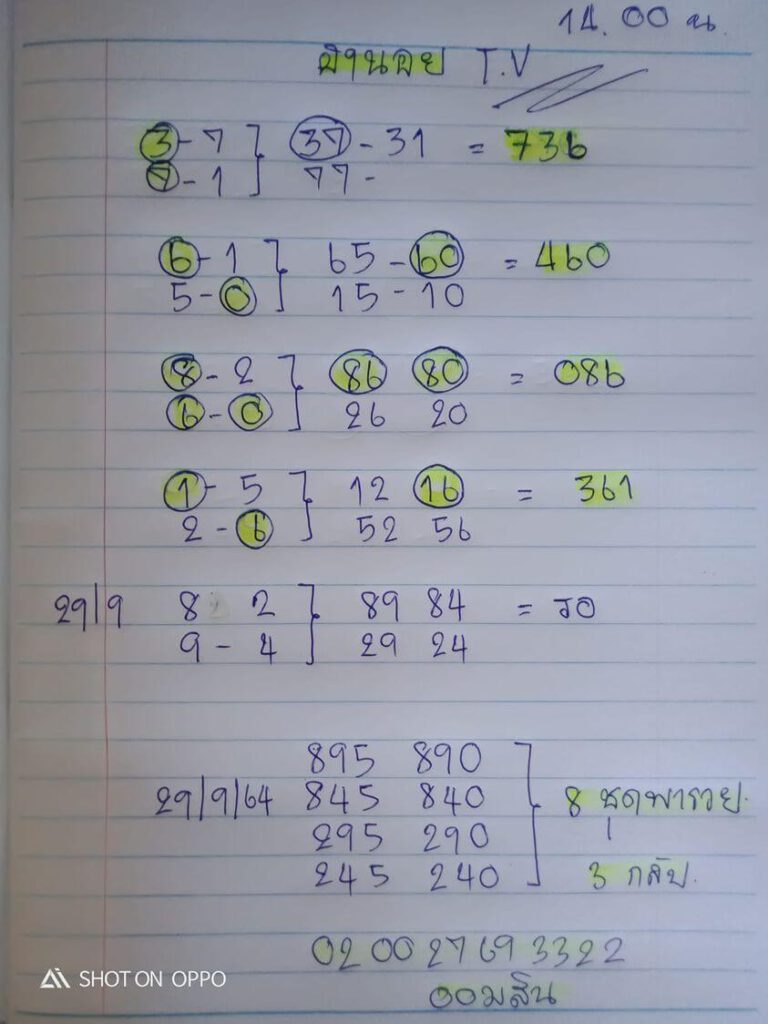 14.00 น.
ฮานอย T.V
3-7 37-31 = 736
7-1 77-
6-1 65-60 = 460
5-0 15-10
8-2 86 80 = 086
6-0 26 20
1-5 12 16 = 361
2-6 52 56
29/9 8 2 89 84 = รอ
9-4 29 24
895 890
29/9/64 845 840 8 ชุดพารวย.
295 290
245 240 3 กลับ.
02 00 27 69 3322
ออมสิน
SHOT ON OPPO